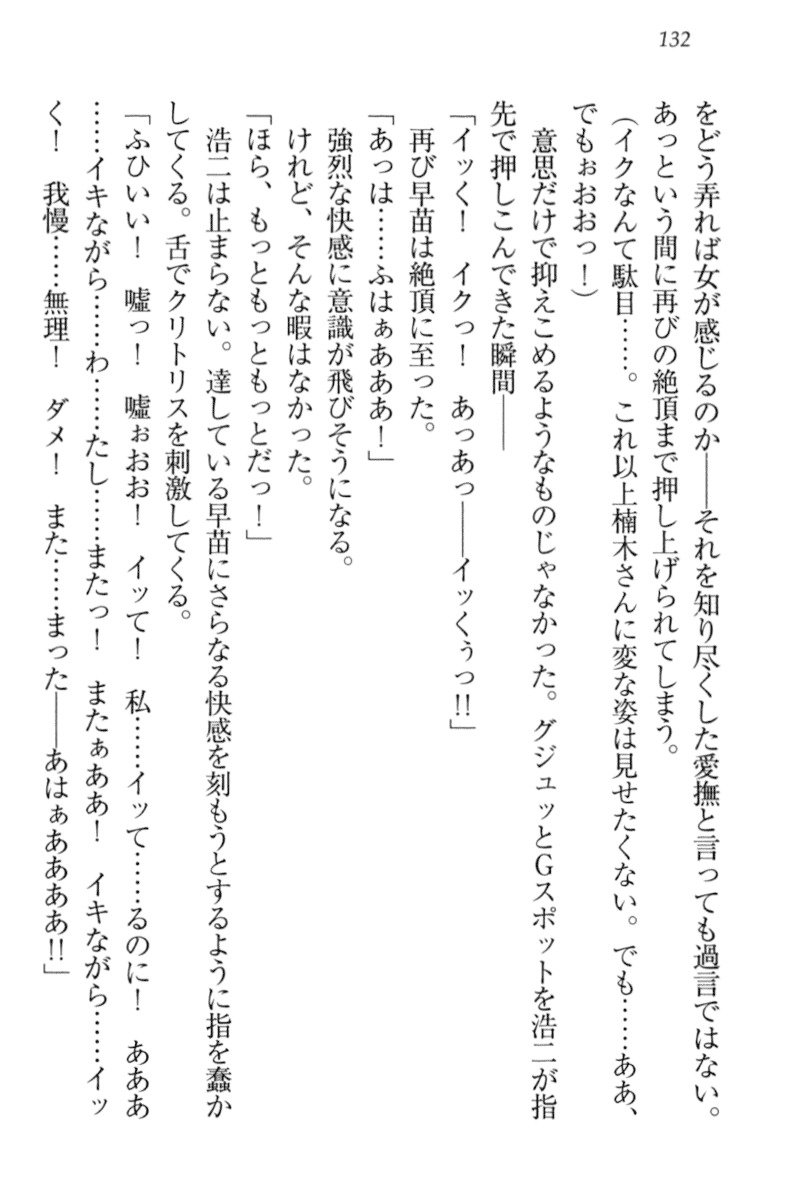 132
をどう弄れば女が感じるのか――それを知り尽くした愛撫と言っても過言ではない。
あっという間に再びの絶頂まで押し上げられてしまう。
(イクなんて駄目……。これ以上楠木さんに変な姿は見せたくない。でも……ああ、
でもぉおおっ！)
意思だけで抑えこめるようなものじゃなかった。グジュッとGスポットを浩二が指
先で押しこんできた瞬間――
「イッく！　イクっ！　あっあっ――イッくぅっ!!」
再び早苗は絶頂に至った。
「あっは……ふはぁあああ！」
強烈な快感に意識が飛びそうになる。
けれど、そんな暇はなかった。
「ほら、もっともっともっとだっ！」
浩二は止まらない。達している早苗にさらなる快感を刻もうとするように指を蠢か
してくる。舌でクリトリスを刺激してくる。
「ふひいい！　嘘っ！　嘘ぉおお！　イッて！　私……イッて……るのに！　あああ
……イキながら……わ……たし……またっ！　またぁああ！　イキながら……イッ
く！　我慢……無理！　ダメ！　また……まった――あはぁああああ!!」